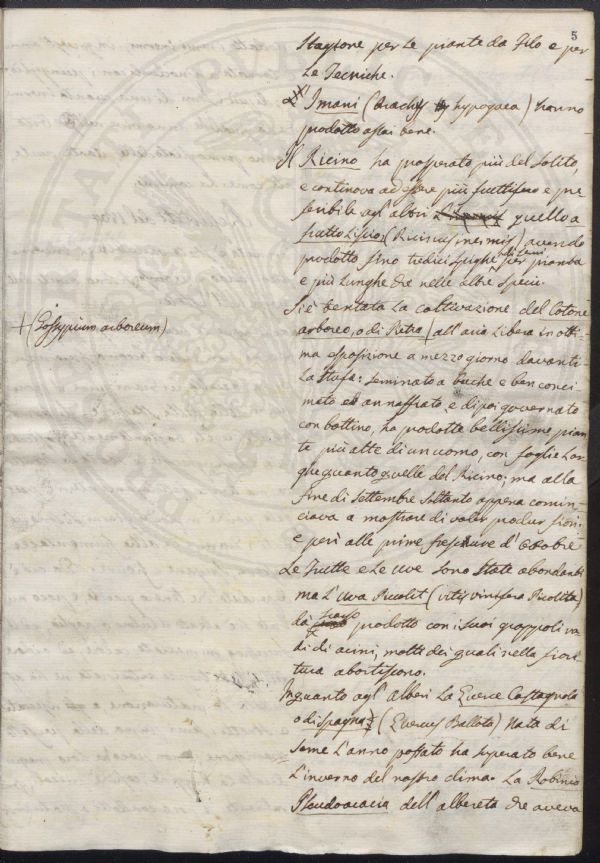 5
Stagione per le piante da Filo e per
le Tecniche.
L'Imani (Arachys hypogaea) hanno
prodotto assai bene.
Il Ricino ha prosperato più del solito,
e continova ad essere più fruttifero e pre-
feribile agl'altri quello a
frutto liscio: (Ricinus inermis) avendo
prodotto fino tredici spighe di semi per pianta
e più lunghe che nelle altre specie.
Si è tentata la coltivazione del Cotone
arboreo, o di Pietra all'aria libera in otti-
+ (Gossypium arboreum)
ma esposizione a mezzo giorno davanti
la stufa: seminato a buche e ben conci
mato ed annaffiato, e di poi governato
con bottino, ha prodotte bellissime pian
te più alte di un uomo, con foglie lar
ghe quanto quelle del Ricino; ma alla
fine di settembre soltanto appena comin-
ciava a mostrare di voler produr fiori
e perì alle prime frescure d'Ottobre
Le Frutte e le Uve sono state abondanti
ma l'Uva Picolit (vitis vinifera Picolita)
dà scarso prodotto con i suoi grappoli va
di di acini, molti dei quali nella fiori
tura abortiscono.
In quanto agl'alberi la Querce Castagnola
o di Spagna (Quercus Ballota) nata di
seme l'anno passato ha superato bene
l'inverno del nostro clima. La Robinia
Pseudoacacia dell'albereta che aveva